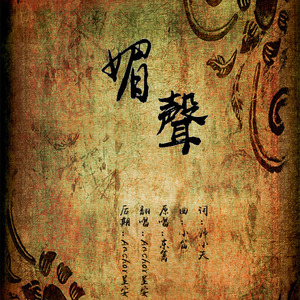 媚聲
词：孙小天
曲：小右
原唱：东篱
翻唱：Anchor里安
后期：Anchor里安